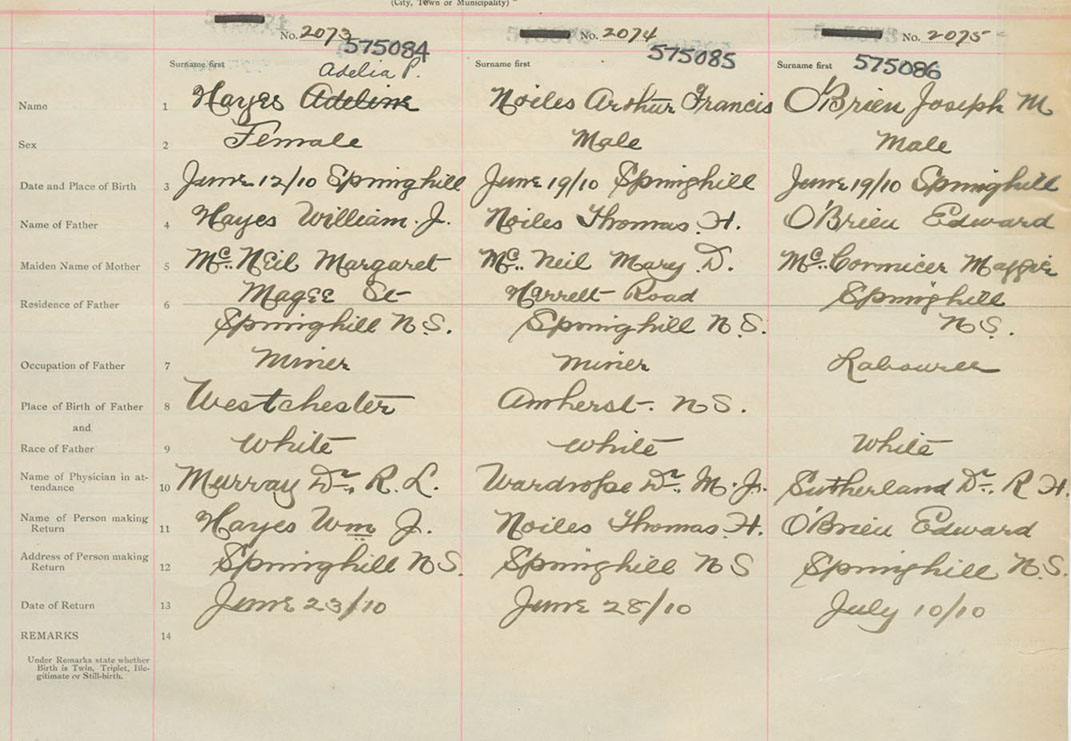 (City, Town or Municipality)
No. 2073 No. 2074 No. 2075
575084 575085 575086
Surname first Surname first Surname first
Adelia P.
Name 1 Hayes Adeline Noiles Arthur Francis O'Brien Joseph M
Sex 2 Female Male Male
Date and Place of Birth 3 June 12/10 Springhill June 19/10 Springhill June 19/10 Springhill
Name of Father 4 Hayes William. J. Noiles Thomas. H. O'Brien Edward
Maiden Name of Mother 5 Mc. Neil Margaret Mc. Neil Mary D. Mc. Cormicer Maggie
Residence of Father 6 Magee St Harrett Road Springhill
Springhill N.S. Springhill N.S. N.S.
Occupation of Father 7 Miner Miner Labourer
Place of Birth of Father 8 Westchester Amherst. N.S.
and
Race of Father 9 White White White
Name of Physician in at-
tendance 10 Murray Dr. R. L. Wardrope Dr. M. J. Sutherland Dr. R H.
Name of Person making
Return 11 Hayes Wm J. Noiles Thomas. H. O'Brien Edward
Address of Person making
Return 12 Springhill N.S. Springhill N S Springhill N.S.
Date of Return 13 June 23/10 June 28/10 July 10/10
REMARKS 14
Under Remarks state whether
Birth is Twin, Triplet, Ille-
gitimate or Still-birth.